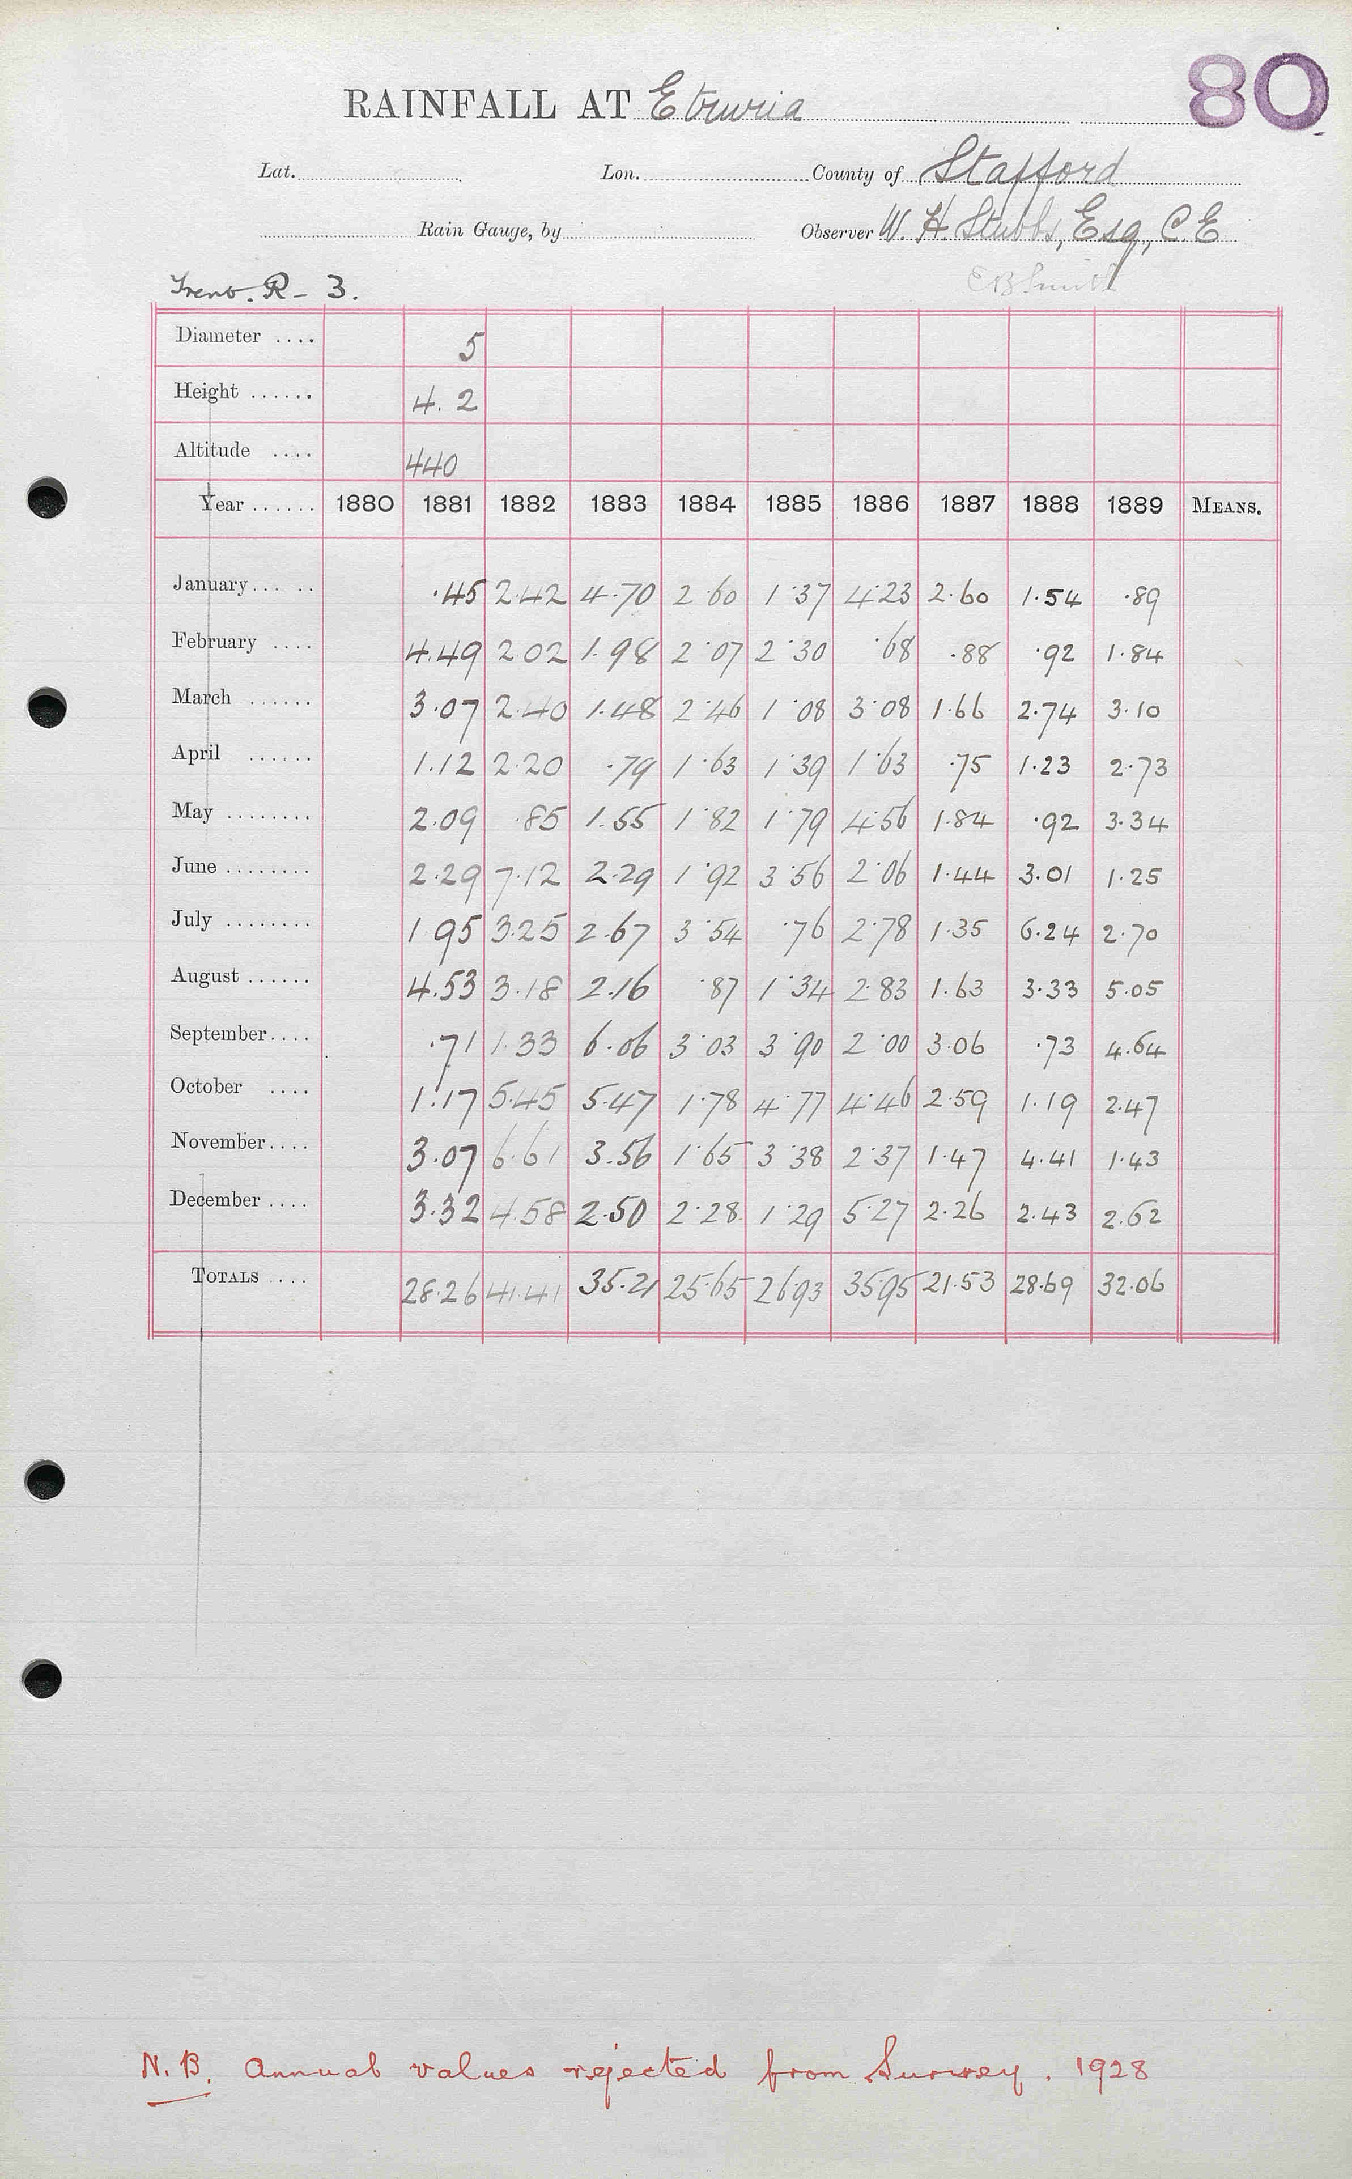 80
RAINFALL AT Etruria
Lat. Lon. County of Stafford
Rain Gauge, by Observer W. H. Stubbs, Esq, C.E
E B Smith
Trent. R - 3.
Diameter .... 5
Height ...... 4. 2
Altitude .... 440
Year ...... 1880 1881 1882 1883 1884 1885 1886 1887 1888 1889 MEANS.
January... .. .45 2.42 4.70 2.60 1.37 4.23 2.60 1.54 .89
February .... 4.49 2.02 1.98 2.07 2.30 .68 .88 .92 1.84
March ...... 3.07 2.40 1.48 2.46 1.08 3.08 1.66 2.74 3.10
April ...... 1.12 2.20 .79 1.63 1.39 1.63 .75 1.23 2.73
May ........ 2.09 .85 1.55 1.82 1.79 4.56 1.84 .92 3.34
June ........ 2.29 7.12 2.29 1.92 3.56 2.06 1.44 3.01 1.25
July ........ 1 95 3.25 2.67 3.54 .76 2.78 1.35 6.24 2.70
August ...... 4.53 3.18 2.16 .87 1.34 2.83 1.63 3.33 5.05
September.... .71 1.33 6.06 3.03 3.90 2.00 3.06 .73 4.64
October .... 1.17 5.45 5.47 1.78 4.77 4.46 2.59 1.19 2.47
November.... 3.07 6.61 3.56 1.65 3.38 2.37 1.47 4.41 1.43
December .... 3.32 4.58 2.50 2.28 1.29 5.27 2.26 2.43 2.62
TOTALS .... 28.26 41.41 35.21 25.65 26.93 35.95 21.53 28.69 32.06
N.B. Annual values rejected from Survey. 1928